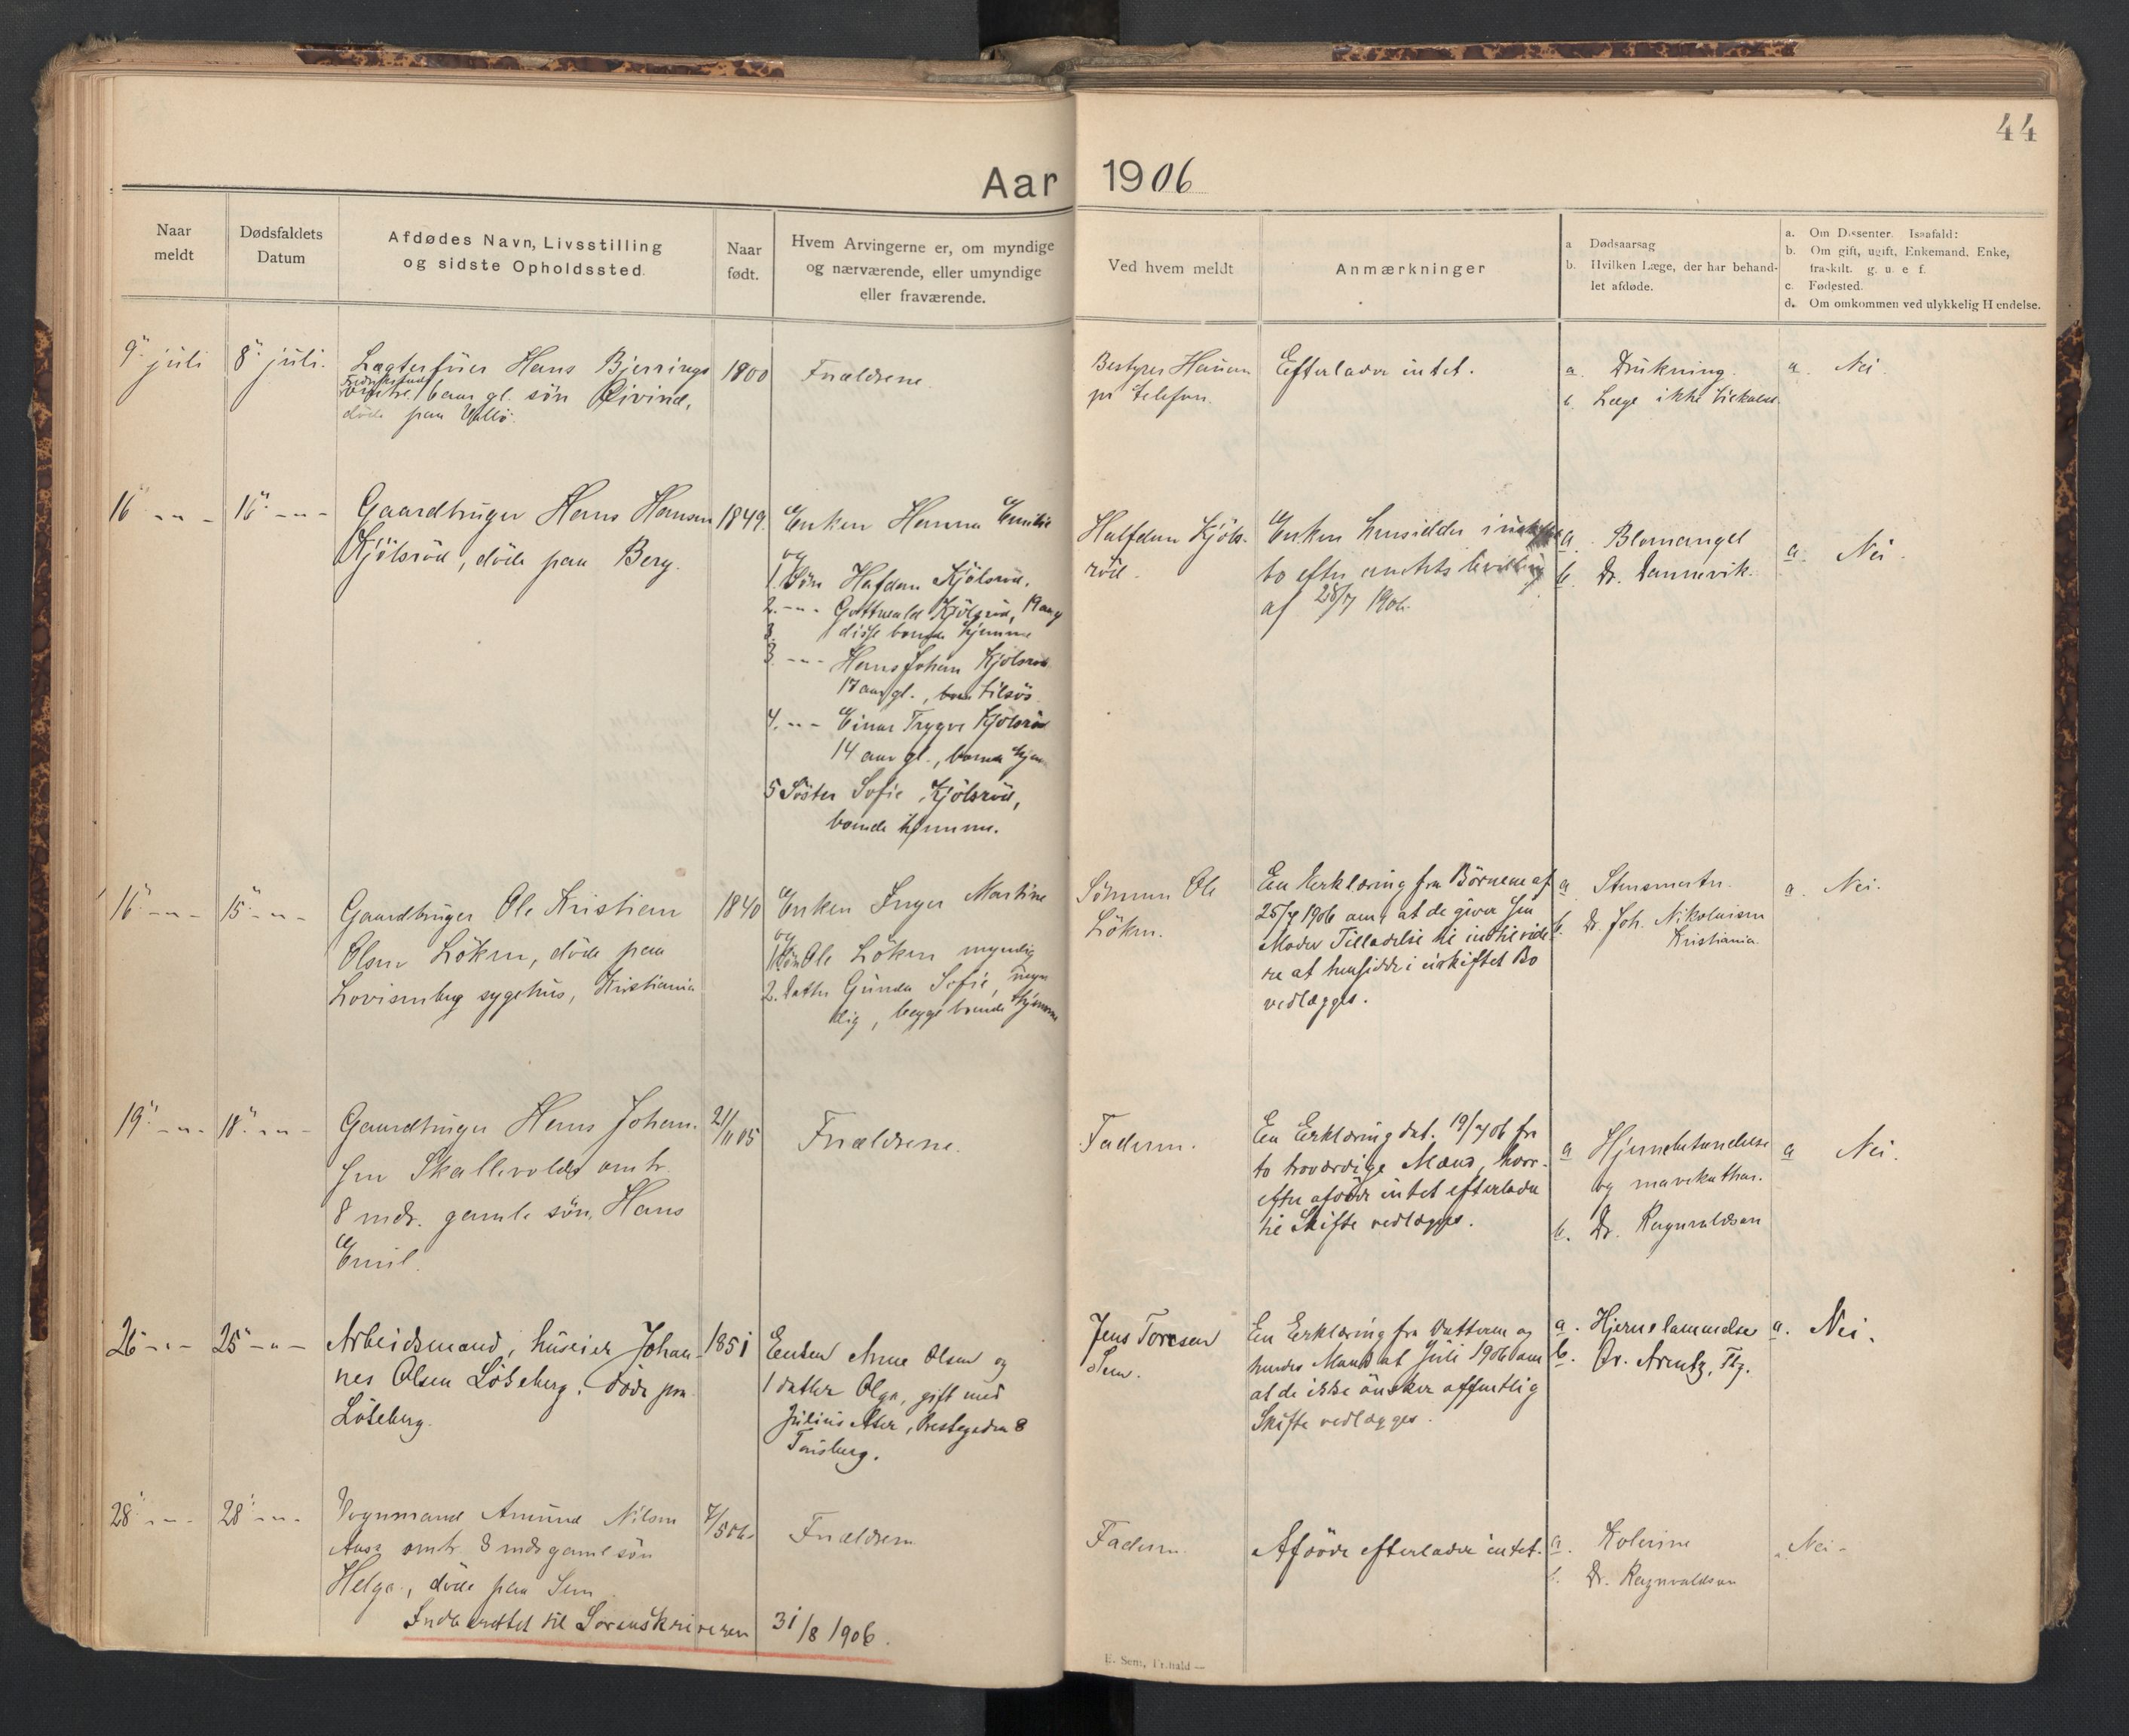 44
Aar 1906
Naar
meldt
Dødsfaldets
Datum
Afdødes Navn, Livsstilling
og sidste Opholdssted.
Naar
født.
Hvem Arvingerne er, om myndige
og nærværende, eller umyndige
eller fraværende.
Ved hvem meldt
Anmærkninger
a Dødsaarsag
b. Hvilken Læge, der har behand-
let afdøde.
a. Om Dissenter. Isaafald:
b. Om gift, ugift, Enkemand, Enke,
fraskilt. g. u. e f.
c. Fødested.
d. Om omkommen ved ulykkelig Hendelse.
9 juli
8 juli.
Hans Bjerrings
6 aar gl. søn Eivind,
døde paa Vallø.
1800
Forældrene.
Bestyrer
pr telefon.
Efterlader intet.
a. Drukning.
b. Læge ikke tilkaldt.
a. Nei.
16 - " -
16 - " -
Gaardbruger Hans Hansen
Kjölsröd, döde paa Berg.
1849.
Enken Hanna Emilie
og
1. Søn Hafdan Kjölsröd.
2. - " - Gottwald Kjölsröd, 19 aar
3. disse boende hjemme
3. - " - Hans Johan Kjölsröd
17 aar gl., tilsös.
4. - " - Einar Trygve Kjölsröd
14 aar gl., boende hjem
5 Söster Sofie Kjölsröd,
boende hjemme.
Halfdan Kjöls-
röd.
Enken hensidder i uskiftet
bo efter amtets bevilling
af 28/7 1906.
a. Blodmangel
b. Dr. Dannevik.
a. Nei.
16 - " -
15 - " -
Gaardbruger Ole Kristian
Olsen Löken, döde paa
Lovisenberg sygehus, Kristiania
1840
Enken Inger Martine
og
1 Søn Ole Löken myndig
2. Datter Gunda Sofie, myn
dig, begge boende hjemme
Sönnen Ole
Löken.
En Erklæring fra Börnene af
25/7 1906 om, at de giver sin
Moder Tilladelse til indtil vide
re at hensidde i uskiftet Bo
vedlægges.
a
b. Dr. Joh. Nikolaisen
Kristiania.
a. Nei.
19 - " -
18 - " -
Gaardbruger Hans Johan-
sen Skallevolds omtr.
8 mdr. gamle søn, Hans
Emil.
21/11 05
Forældrene.
Faderen.
En Erklæring dat. 19/7 06 fra
to troværdige Mænd, hvor-
efter afdøde intet efterlader
til Skifte vedlægges.
a Hjernebetændelse
og mavekathar.
b. Dr. Ragnvaldsen
a Nei.
26 - " -
25 - " -
Arbeidsmand, huseier Johan-
nes Olsen Löteberg. Döde paa
Löteberg.
1851
Enken Anne Olsen og
1 datter Olga, gift med
Julius Prestegaden 8
Tønsberg.
Jens Toresen
Sem.
En Erklæring fra Datteren og
hendes Mand af Juli 1906 om
at de ikke önsker offentlig
Skifte vedlægges.
a. Hjernelammelse
b. Dr. Arentz, Tbg.
a. Nei.
28 - " -
28 - " -
Vognmand Amund Nilsen
omtr. 3 mdr gamle søn
Helge, döde paa Sem
7/5 06.
Forældrene
Faderen.
Afdöde efterlader intet.
a. Kolerine
b. Dr. Ragnvaldsen
Nei -
Indberettet til Sorenskriveren 31/8 1906.
E. Sem, Fr.hald —